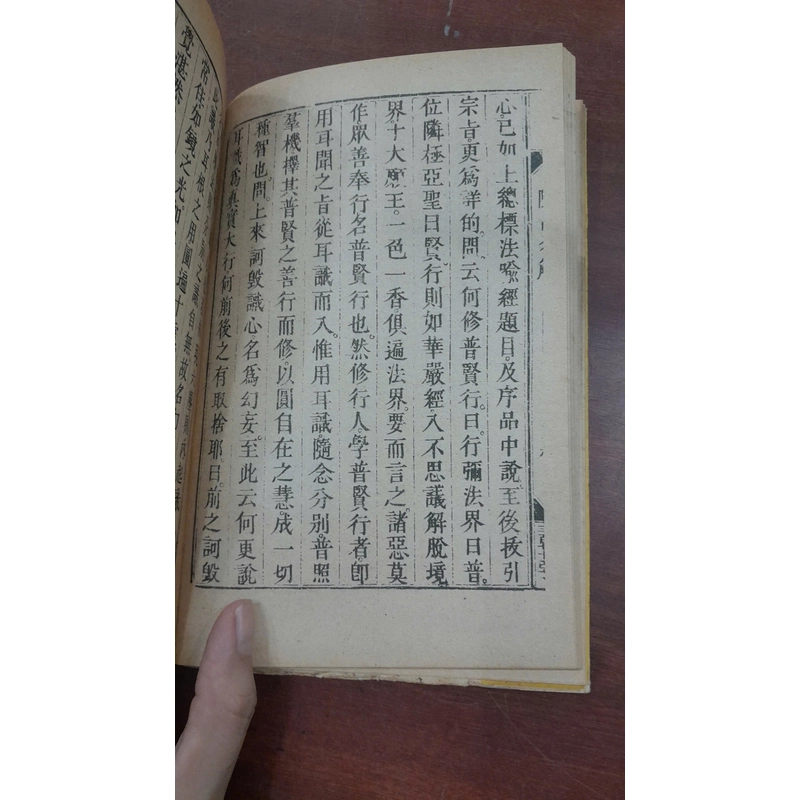 心。已如上總標法喩。經題目。及序品中說。至後援引
宗旨更爲詳的。問。云何修普賢行。曰。行彌法界曰普。
位隣極亞聖曰賢。行則如華嚴經。入不思議解脫境
界十大願王。一色一香。俱遍法界。要而言之。諸惡莫
作。眾善奉行。名普賢行也。然修行人。學普賢行者。卽
用耳聞之旨。從耳識而入。惟用耳識。隨念分別。普照
羣機。擇其普賢之善行而修。以圓自在之慧。成一切
種智也。問。上來訶毀識心。名爲幻妄。至此云何更說
耳識爲眞實大行。何前後之有取捨耶。曰。前之訶毀
之用圓遍十
常住如鏡之光
覺湛